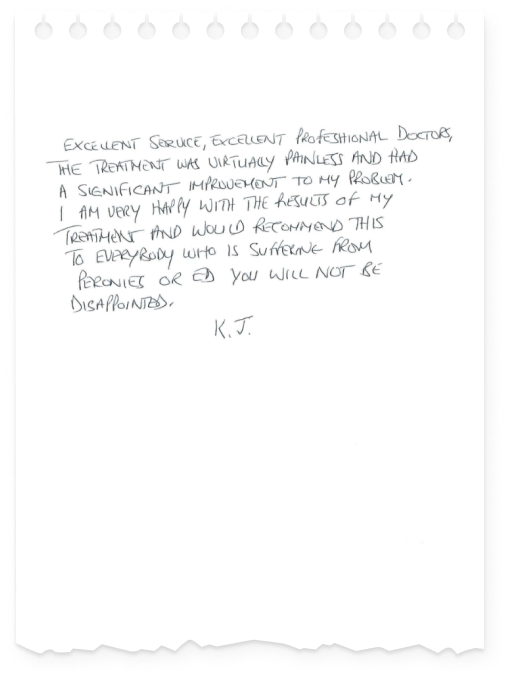 EXCELLENT SERVICE, EXCELLENT PROFESSIONAL DOCTORS,
THE TREATMENT WAS VIRTUALLY PAINLESS AND HAD
A SIGNIFICANT IMPROVEMENT TO MY PROBLEM.
I AM VERY HAPPY WITH THE RESULTS OF MY
TREATMENT AND WOULD RECOMMEND THIS
TO EVERYBODY WHO IS SUFFERING FROM
PERONIES OR ED YOU WILL NOT BE
DISAPPOINTED.
K.J.